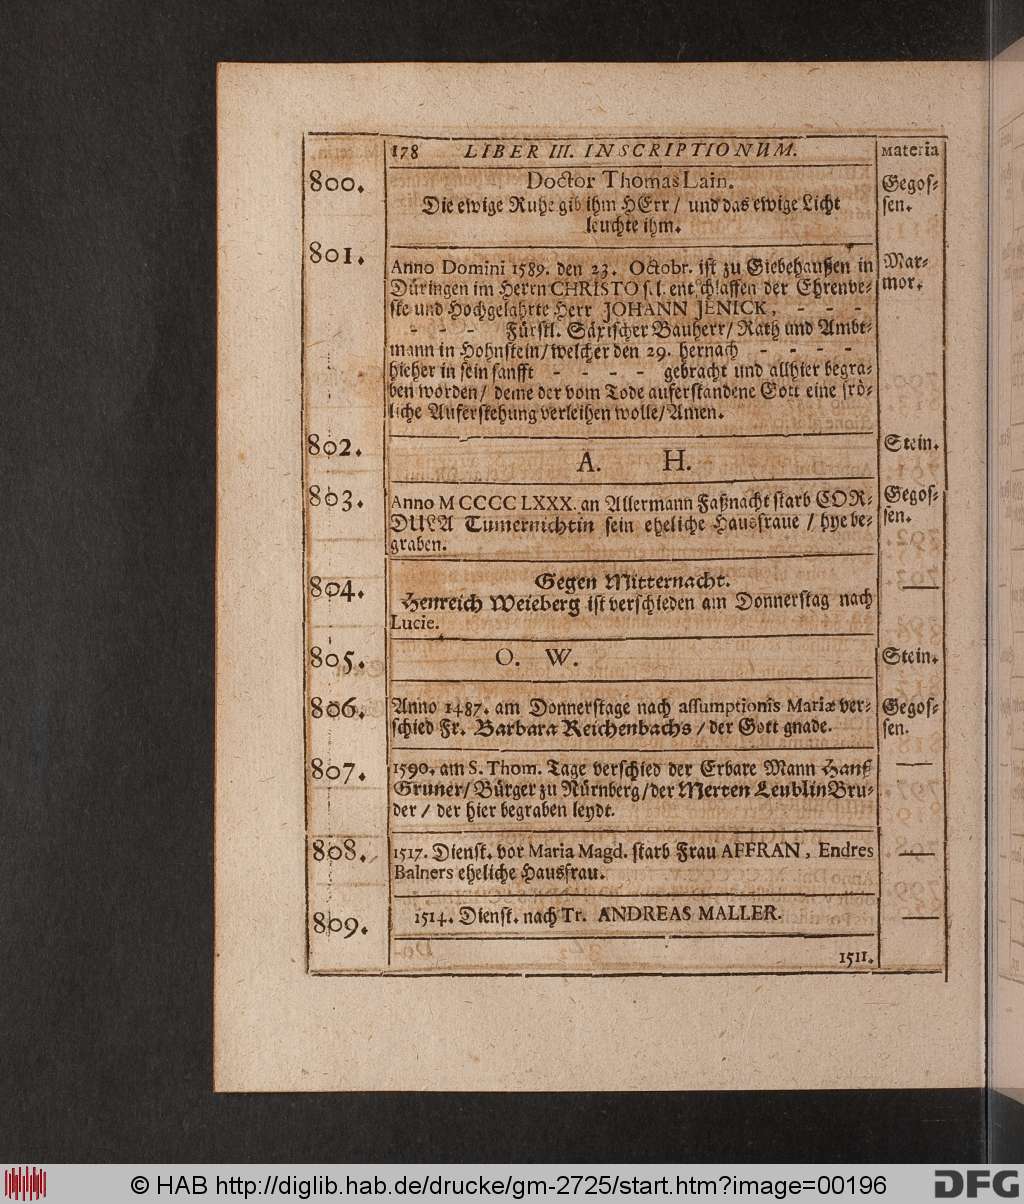 178 LIBER III. INSCRIPTIONUM. Materia
800. Doctor Thomas Lain. Gegos-
Die ewige Ruhe gib ihm HErr / und das ewige Licht sen.
leuchte ihm.
801. Anno Domini 1589. den 23. Octobr. ist zu Giebehaußen in Mar-
Düringen im Herrn CHRISTO s. l. entschlaffen der Ehrenve- mor.
ste und Hochgelahrte Herr JOHANN JENICK, - - -
- - - Fürstl. Säxischer Bauherr / Rath und Ambt-
mann in Hohnstein / welcher den 29. hernach - - - -
hieher in sein sanfft - - - - gebracht und allhier begra-
ben worden / deme der vom Tode auferstandene Gott eine frö-
liche Auferstehung verleihen wolle / Amen.
802. A. H. Stein.
803. Anno M CCCC LXXX. an Allermann Faßnacht starb COR- Gegos-
DULA Tumernichtin sein eheliche Hausfraue / hye be- sen.
graben.
804. Gegen Mitternacht. —
Henreich Weieberg ist verschieden am Donnerstag nach
Lucie.
805. O. W. Stein.
806. Anno 1487. am Donnerstage nach assumptionis Mariæ ver- Gegos-
schied Fr. Barbara Reichenbachs / der Gott gnade. sen.
807. 1590. am S. Thom. Tage verschied der Erbare Mann Hanß —
Gruner / Bürger zu Nürnberg / der Merten Leublin Bru-
der / der hier begraben leydt.
808. 1517. Dienst. vor Maria Magd. starb Frau AFFRAN, Endres —
Balners eheliche Hausfrau.
809. 1514. Dienst. nach Tr. ANDREAS MALLER. —
1511.
© HAB http://diglib.hab.de/drucke/gm-2725/start.htm?image=00196
DFG